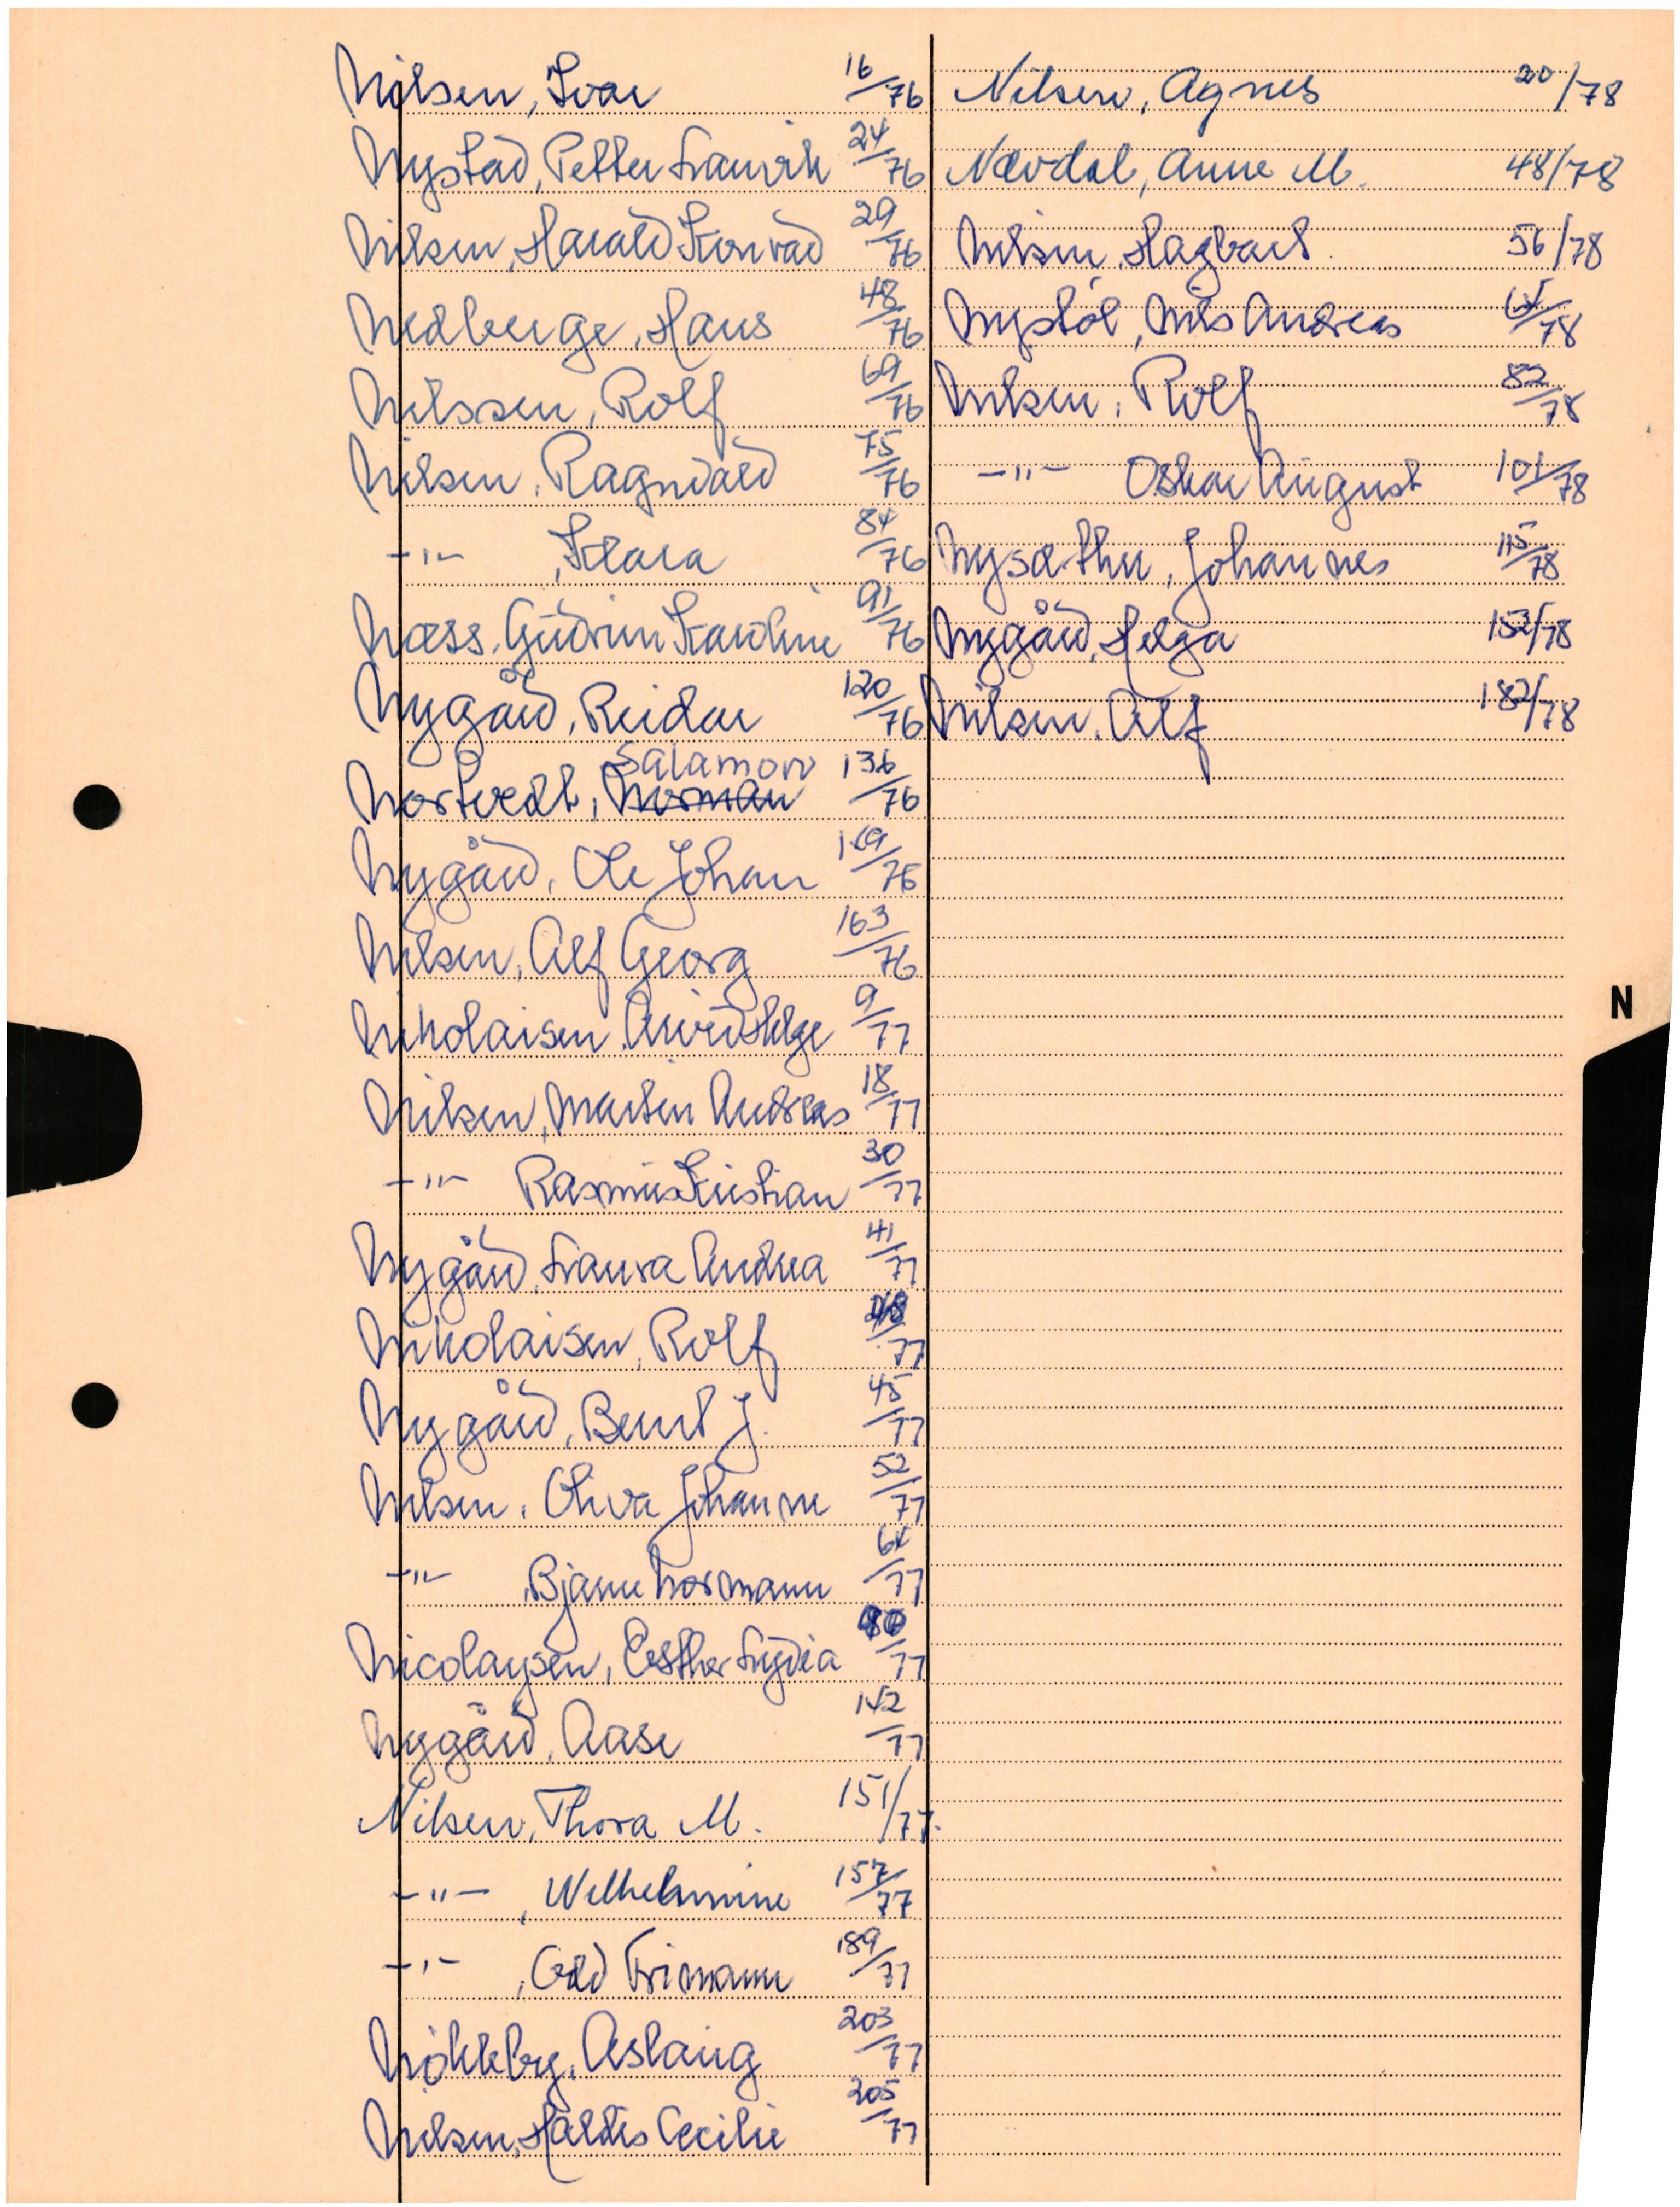 Nilsen, Ivar 16/76
Nystad, Petter Laurvik 24/76
Nilsen, Harald Konrad 29/76
Nedberge, Hans 48/76
Nilssen, Rolf 69/76
Nilsen, Ragnvald 75/76
-"- , Klara 84/76
Næss, Gudrun Karoline 91/76
Nygård, Reidar 120/76
Nortvedt, Norman Salamon 136/76
Nygård, Ole Johan /76
Nilsen, Alf Georg 163/76
Nikolaisen, Arvid Helge 9/77
Nilsen, Martin Andreas 18/77
-"- Rasmus Kristian 30/77
Nygård, Laura Andrea 41/77
Nikolaisen, Rolf /77
Nygård, Bernt J. 45/77
Nilsen, Oliva Johanne 52/77
-"- , Bjarne Normann 64/77
Nicolaysen, Esther Lydia /77
Nygård, Aase 142/77
Nilsen, Thora M. 151/77.
-"- , Wilhelmine 157/77
-"- , Odd Frimann 189/77
Nökleby, Aslaug 203/77
Nilsen, Haldis Cecilie 205/77
Nilsen, Agnes 20/78
Nævdal, Anne M. 48/78
Nilsen, Hagbart 56/78
Nystöl, Nils Andreas /78
Nilsen, Rolf 82/78
-"- Oskar August 101/78
Nysæther, Johannes 115/78
Nygård, Helga 152/78
Nilsen, Alf 182/78
N